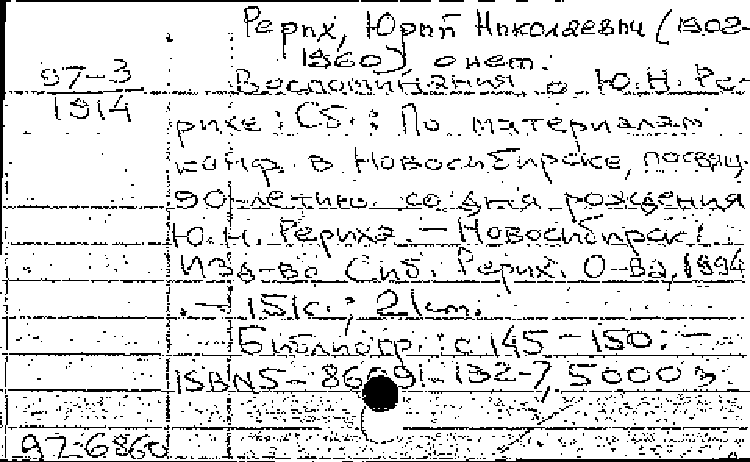 Рерих, Юрий Николаевич (1902-
1960) о нем.
97-3
1914
Воспоминания о Ю.Н. Ре-
рихе : Сб. : По материалам
конф. в Новосибирске, посвящ.
90-летию со дня рождения
Ю.Н. Рериха. – Новосибирск :
Изд-во Сиб. Рерих. О-ва, 1994
. – 151с. ; 21см.
Библиогр.: с 145 – 150. –
ISBN5- 86091-132-7, 5000 э.
97-6860